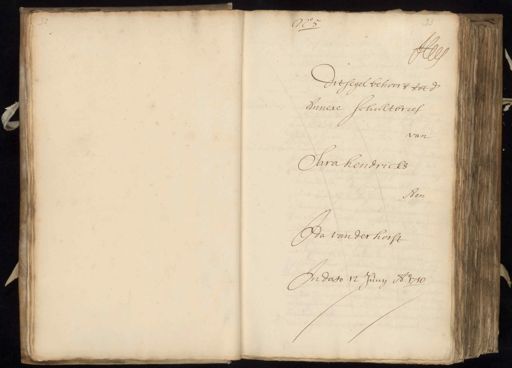 32
33
No 5
Dit segel behoort tot d
Annexe schultbrief
van
Sara hendricks
Aen
Ida van der horst
In dato 12 Juny Ao 1710